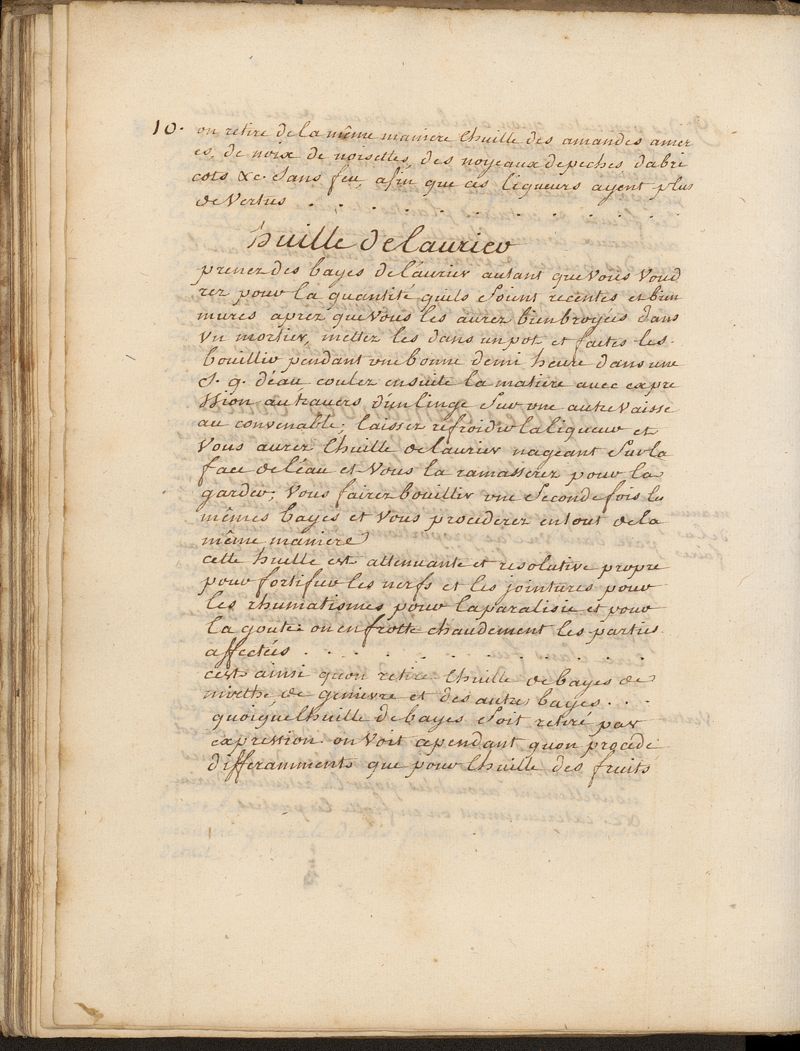 10. on retire de la même maniere lhuille des amandes amer
es, de noix de noisettes, des noyeaux de peches dabri
cots &c. sans feu, afin que ces liqueurs ayent plus
de vertus . . . . . . . . . . . .
huille de laurier
prenez des bayes de laurier autant que vous voud
rez pour la quantité quils soient recentes et bien
mures aprez que vous les aurez bien broyées dans
vn mortier, mettez les dans un pot et faites les
bouillir pendant vne bonne demi heure dans une
s. q. déau, coulez ensuite la matiere avec expre
ssion au travers d'un linge sur vne autre vaisse
au convenable; laissez refroidir la liqueur et
vous aurez lhuille de laurier nageant sur la
face de léau et vous la ramasserez pour la
garder; vous fairez bouillir vne seconde fois les
mêmes bayes et vous procederez en tout de la
même maniere
cette huille est attenuante et resolutive propre
pour fortifier les nerfs et les jointures pour
les rhumatismes pour la paralisie et pour
la goute on en frotte chaudement les parties
affectées . . . . . . . . . . . .
cest ainsi quon retire lhuille de bayes de
mirthe, de genievre et des autres bayes. . .
quoique lhuille de bayes soit retiré par
expression. on voit cependant quon procede
differamments que pour lhuille des fruits